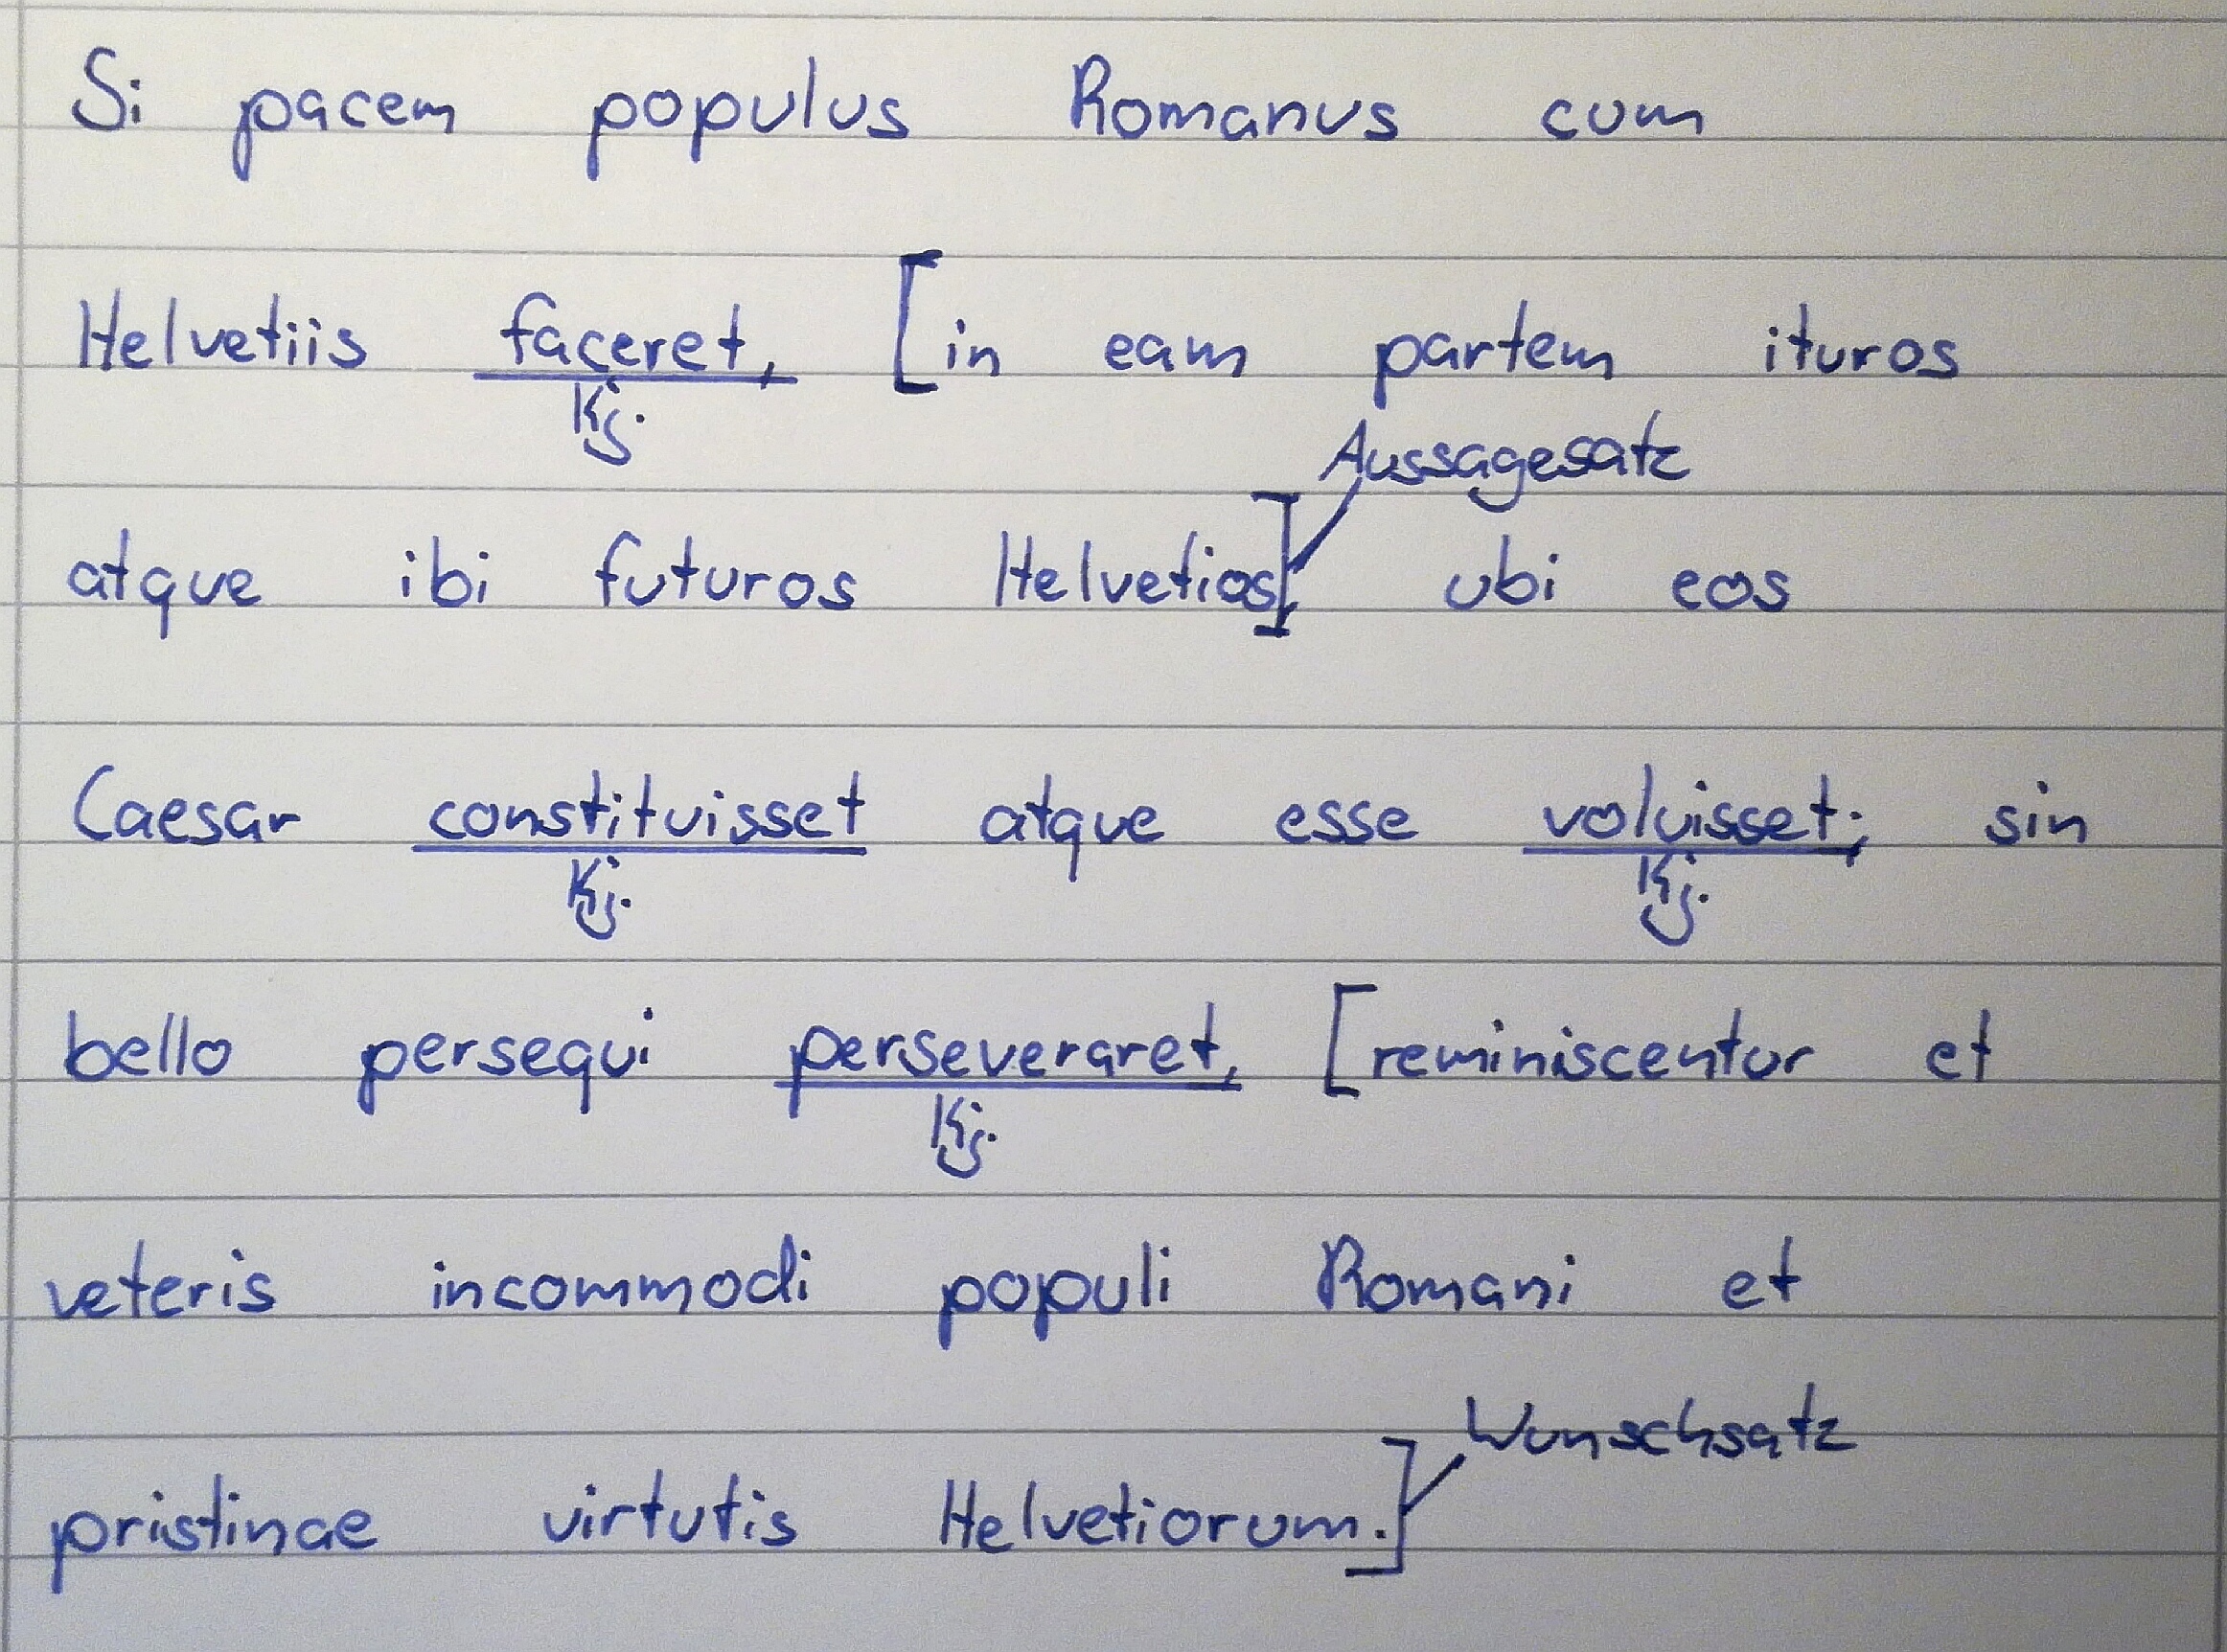 Si pacem populus Romanus cum
Helvetiis faceret, [in eam partem ituros
Kj.
Aussagesatz
atque ibi futuros Helvetios,] ubi eos
Caesar constituisset atque esse voluisset; sin
Kj. Kj.
bello persequi perseveraret, [reminiscentur et
Kj.
veteris incommodi populi Romani et
Wunschsatz
pristinae virtutis Helvetiorum.]